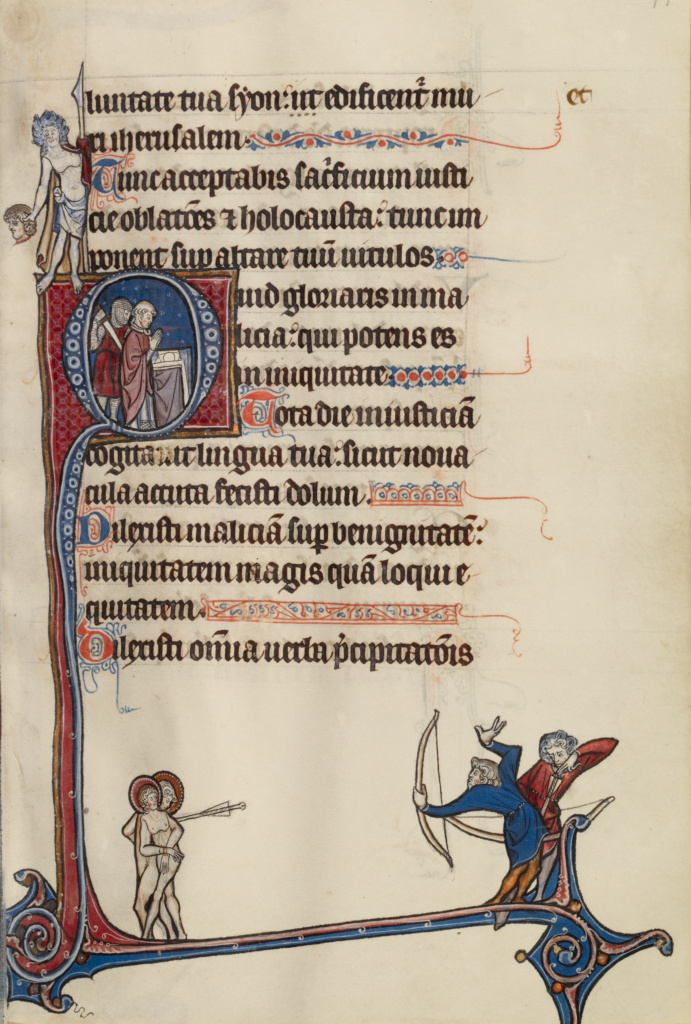 luntate tua syon: ut edificent᷑ mu et
ri iherusalem.
Tunc acceptabis sac͛ficium iusti
cie oblatōes ⁊ holocausta: tunc im
ponent suꝑ altare tuū uitulos
Quid gloriaris in ma
licia: qui potens es
in iniquitate
Tota die iniusticiā
cogitauit lingua tua: sicut noua
cula accuta fecisti dolum.
Dilexisti maliciā suꝑ benignitatē:
iniquitatem magis quā loqui e
quitatem.
Dilexisti om̄ia uerba p̄cipitatōis